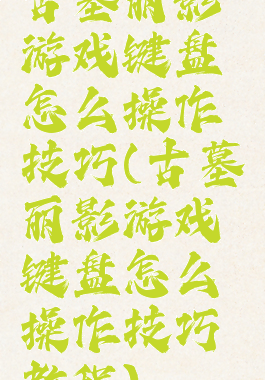 古墓丽影
游戏键盘
怎么操作
技巧(古墓
丽影游戏
键盘怎么
操作技巧